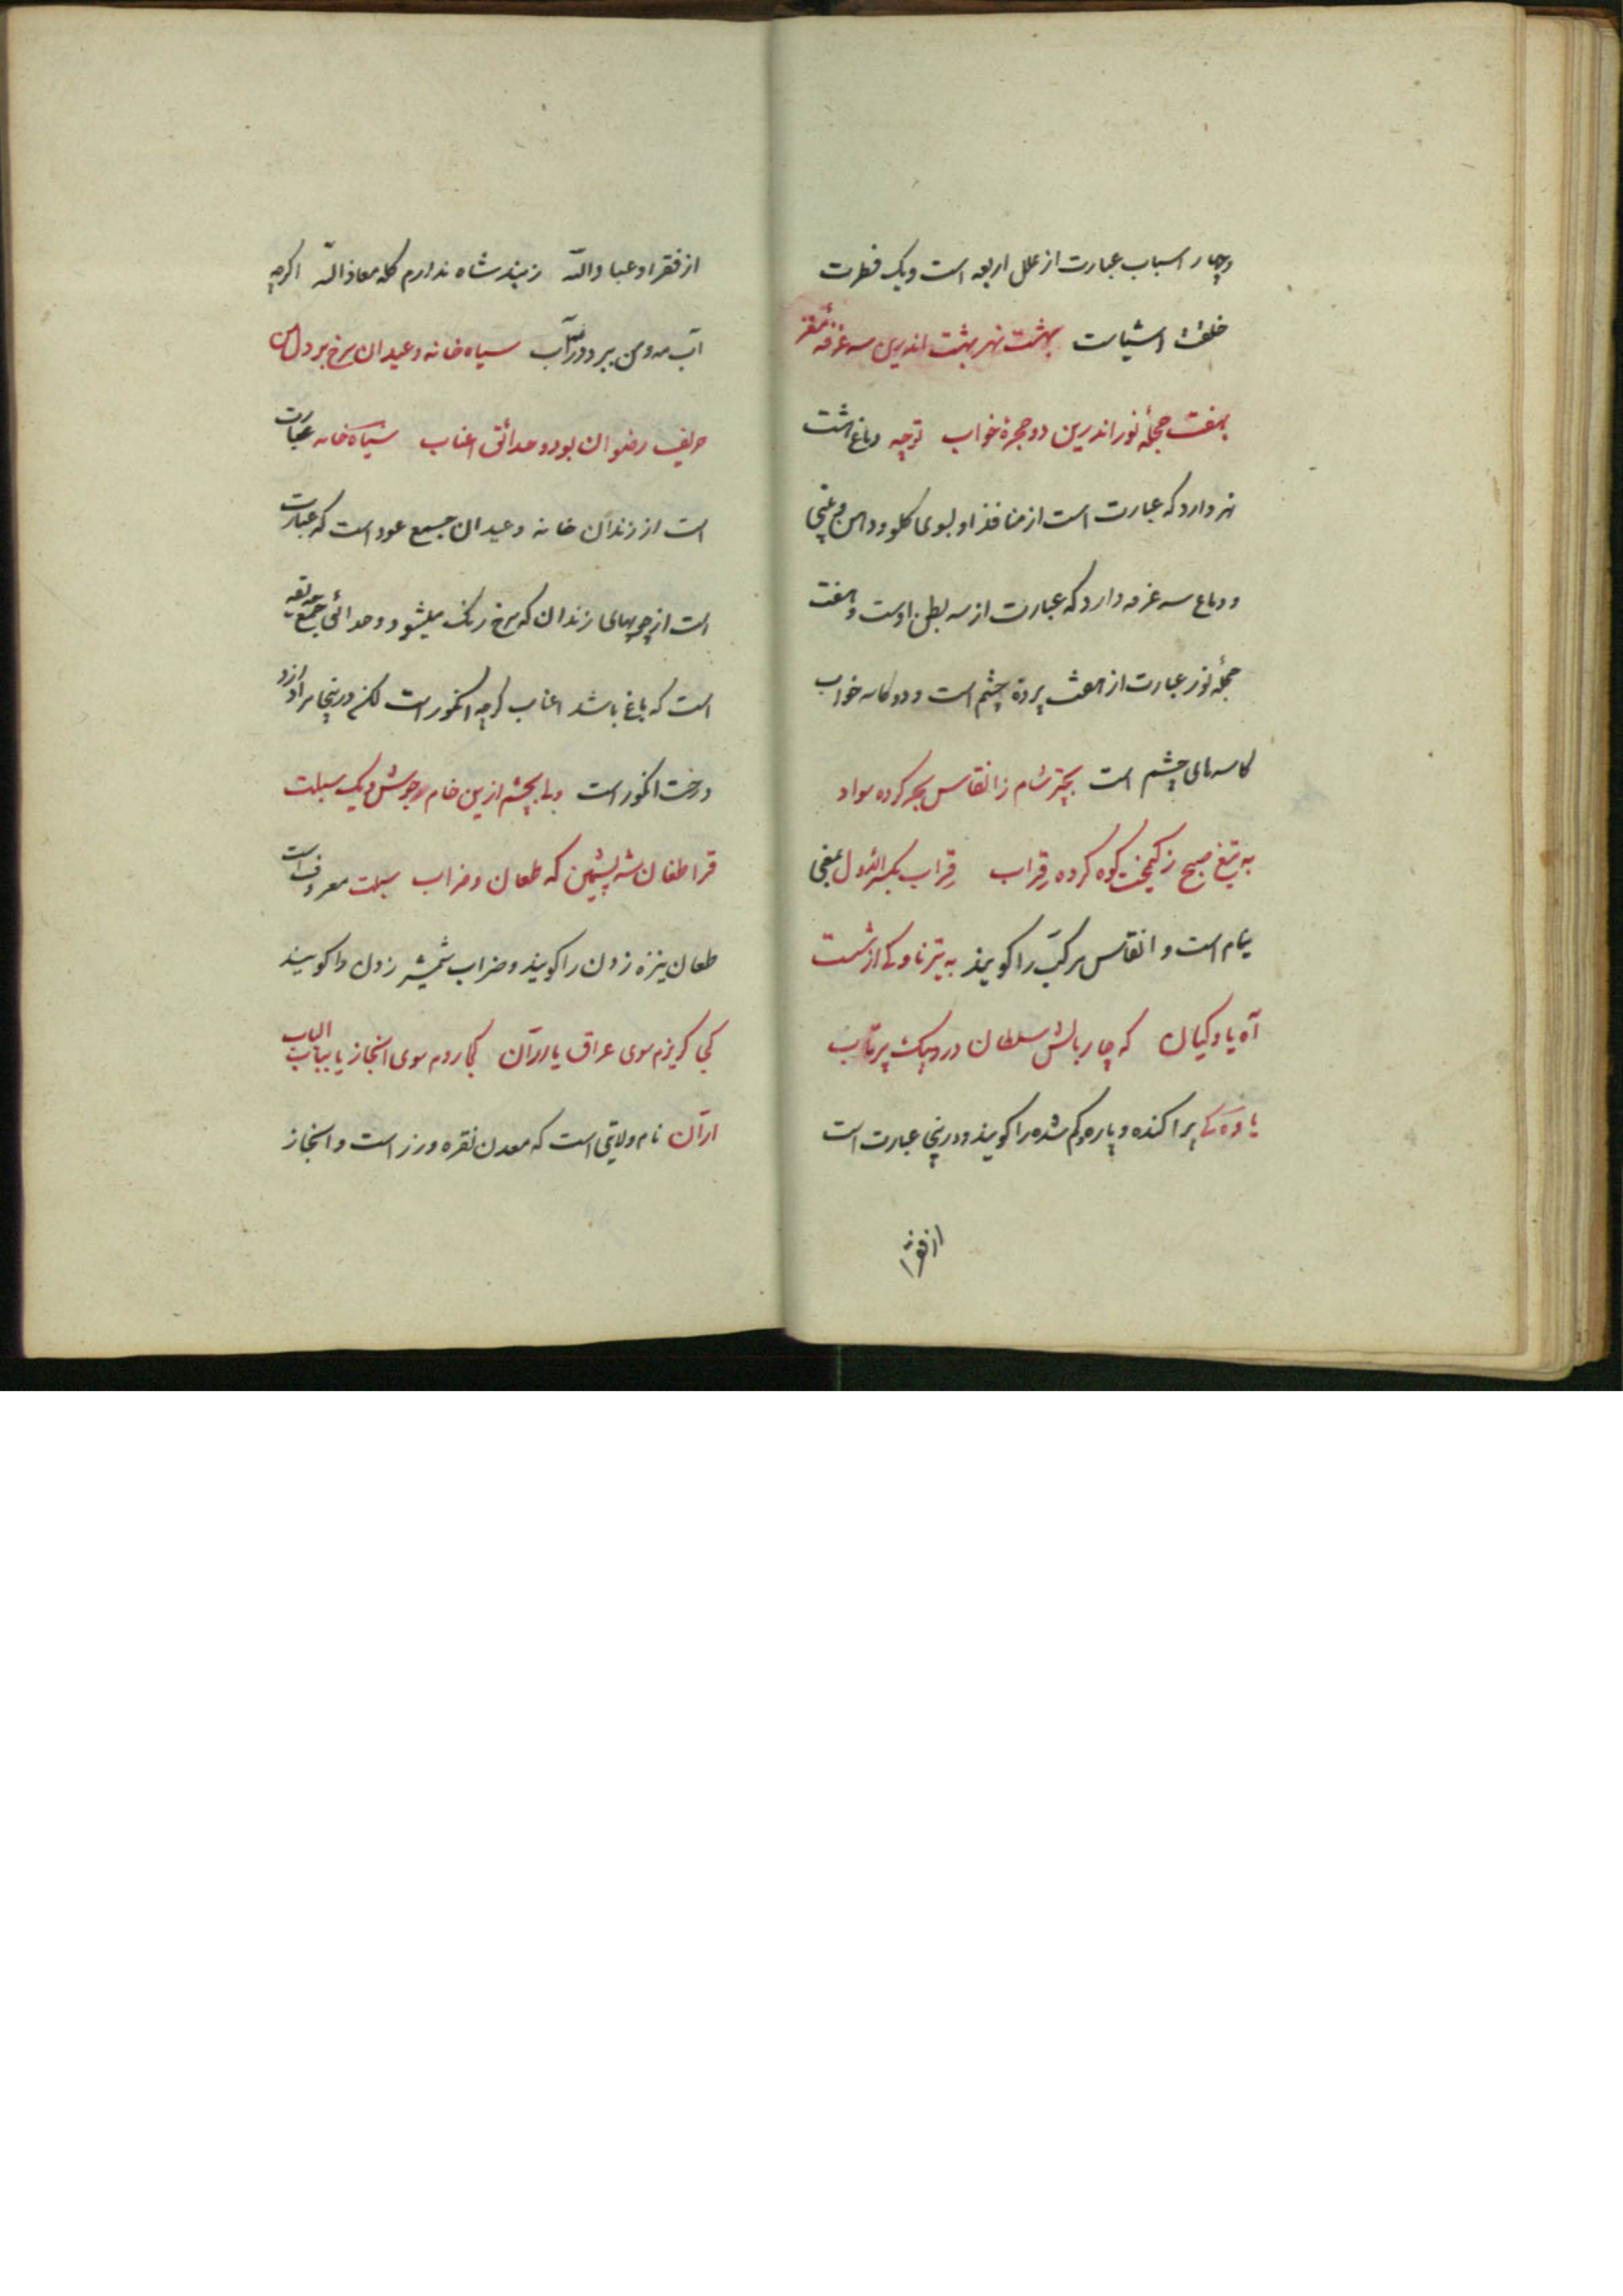 وچهار اسباب عبارت از علل اربعه است ویک فطرت
خلقت اشیاست بهشت نهر بهشت اندرین سه غرفهٔ مغز
بهفت حجلهٔ نور اندرین دو حجرهٔ خواب ترجمه دماغ هشت
نهر دارد که عبارت است از منافذ او بسوی کلو ودهن و بینی
ودماغ سه غرفه دارد که عبارت از سه بطن اوست وهفت
حجلهٔ نور عبارت از هفت پردهٔ چشم است ودو کاسه خواب
کاسهای چشم است بچتر شام ز انقاس بحر کرده سواد
به تیغ صبح ز کیمخت کوه کرده قِراب قِراب بکسر الاول بمعنی
نیام است و انقاس مرکّب را کویند به تیر ناوکی از شست
آه یاوکیان که چار بالش سلطان درد بیک پرتاب
یاوکی پراکنده وپاره وکم شده را کویند ودرینجا عبارت است
از فقرا
از فقرا وعباد الله ز پند شاه ندارم کله معاذ الله اکرچه
آب مه ومن ببرد در آب سیاه خانه وعیدان سرخ بر دل من
حریف رضوان بود وحدائق اعناب سیاه خانه عبارت
است از زندان خانه وعیدان جمع عود است که عبارت
است از چوبهای زندان که سرخ رنک میشود وحدائق جمع حدیقه
است که باغ باشد اعناب کرچه انکور است لکن درینجا مراد ازو
درخت انکور است بچشم ازین خام جوش دیک سبلت
قراطغان شه پشمین که طعان وضراب سبلت معروف است
طعان نیزه زدن را کویند وضراب شمشیر زدن را کویند
کی کریزم سوی عراق یا ارّان کجا روم سوی ابخاز یا بباب الباب
ارّان نام ولایتی است که معدن نقره وزر است وابخاز